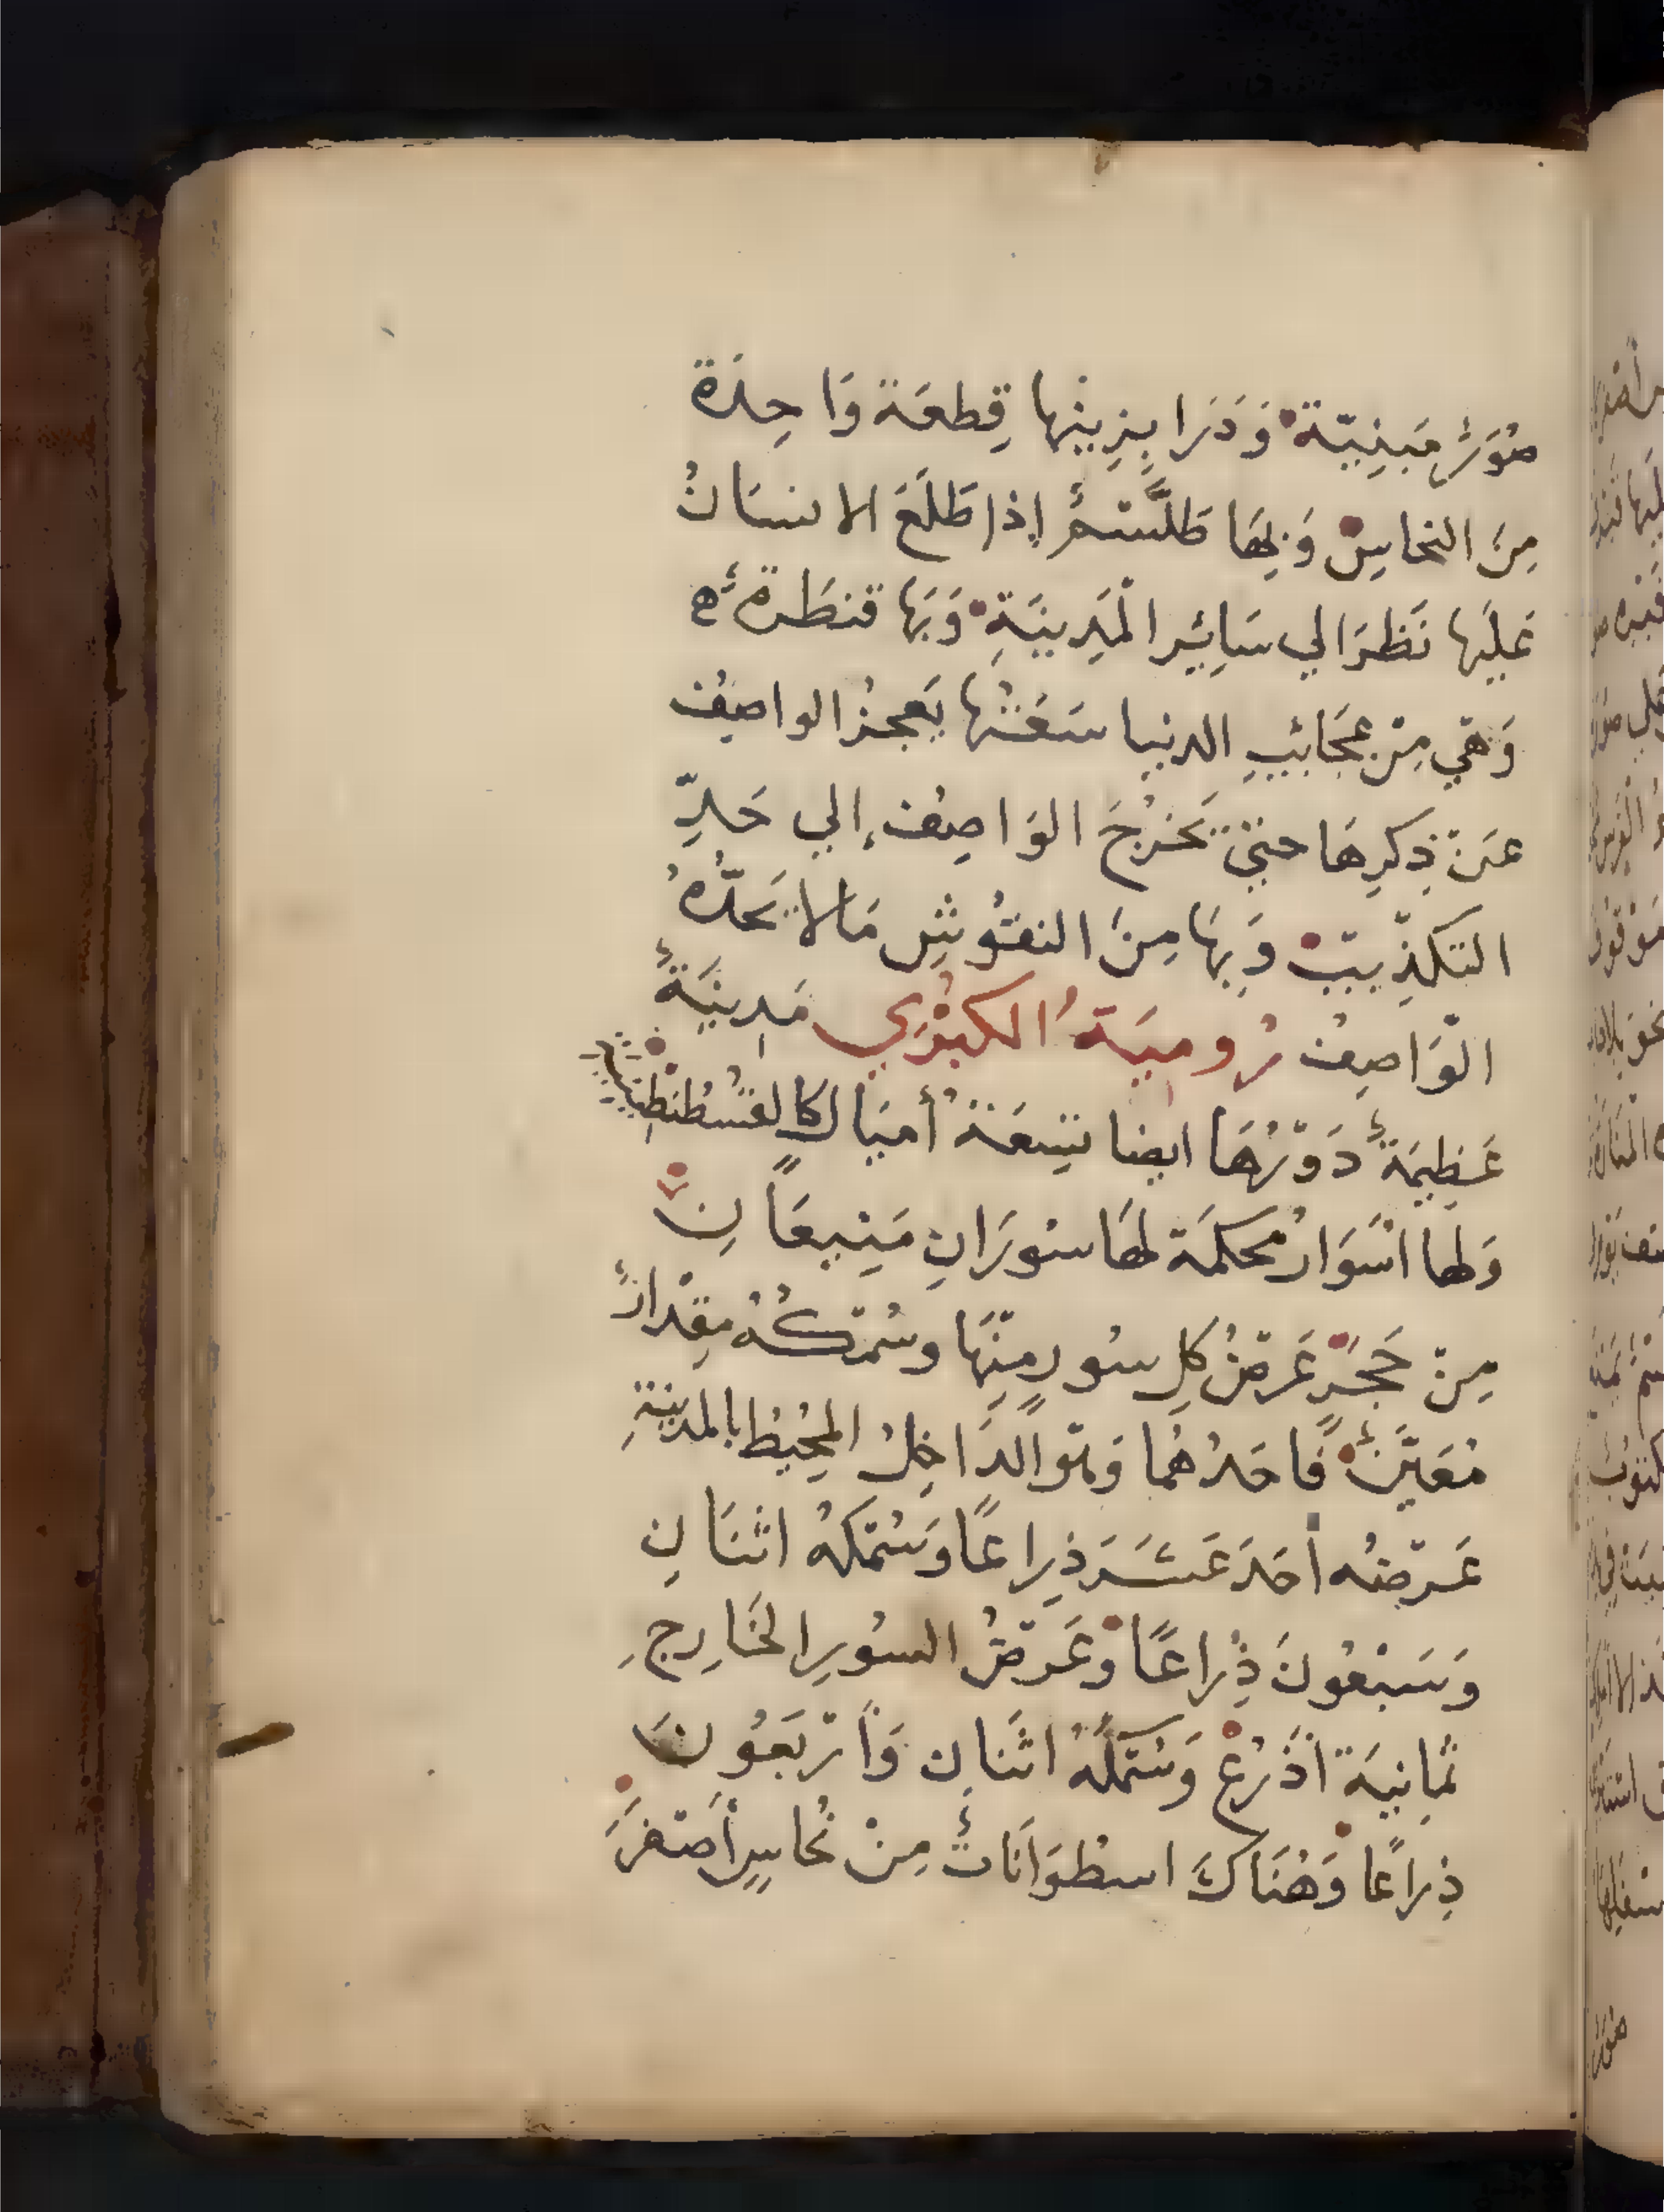 صُوَرٌ مَبنِيّة وَدَرَابِزِينُها قِطعَة وَاحِدَة
مِنَ النحاسِ وَبِهَا طَلَّسْمٌ إذا طَلَعَ الانسَانُ
عَليَها نَظَرَ الي سَايِرِ الْمَدِينَةِ وَبَها قنطَرةٌ
وَهِي مِنْ عَجَائبِ الدنيا سَعَتُها يَعجزُ الواصِفُ
عَنْ ذِكرِهَا حتيّ تَخرُجَ الوَاصِفُ إلي حَدِّ
التكذِّيبْ وَبِهَا مِنَ النقوُشِ مَالا يَحدُّهُ
الوَاصِفُ رُومِيَةُ الكبْرَي مَدِينَةٌ
عَظِيمَةٌ دَوْرُهَا ايضا تِسِعَةُ أميَال كالقسُطنطِنية
وَلها اسْوَارٌ محكمَة لهَا سُورَانِ مَنِيعَانِ
مِنْ حَجَرٍ عَرضُ كلِ سُورٍ مِنْهَا وسُمْكُهُ مِقْدَارٌ
مُعَيَّنٌ فاحَدُهُمَا وَهْوَ الدَاخِلُ المحُيِطُ بالمدينةِ
عَرْضُه احَدَ عَشَرَ ذِراعًا وَسُمْكهُ اثنَانِ
وَسَبْعُونَ ذِراعًا وَعَرْضُ السُورِ الخَارِجِ
ثمانِيَة اذْرُعْ وَسُمكُهُ اثنَانِ وَأرْبَعُونَ
ذِراعًا وَهُنَاكَ اسطوَانَاتٌ مِنْ نُحاسٍ أصْفَرَ